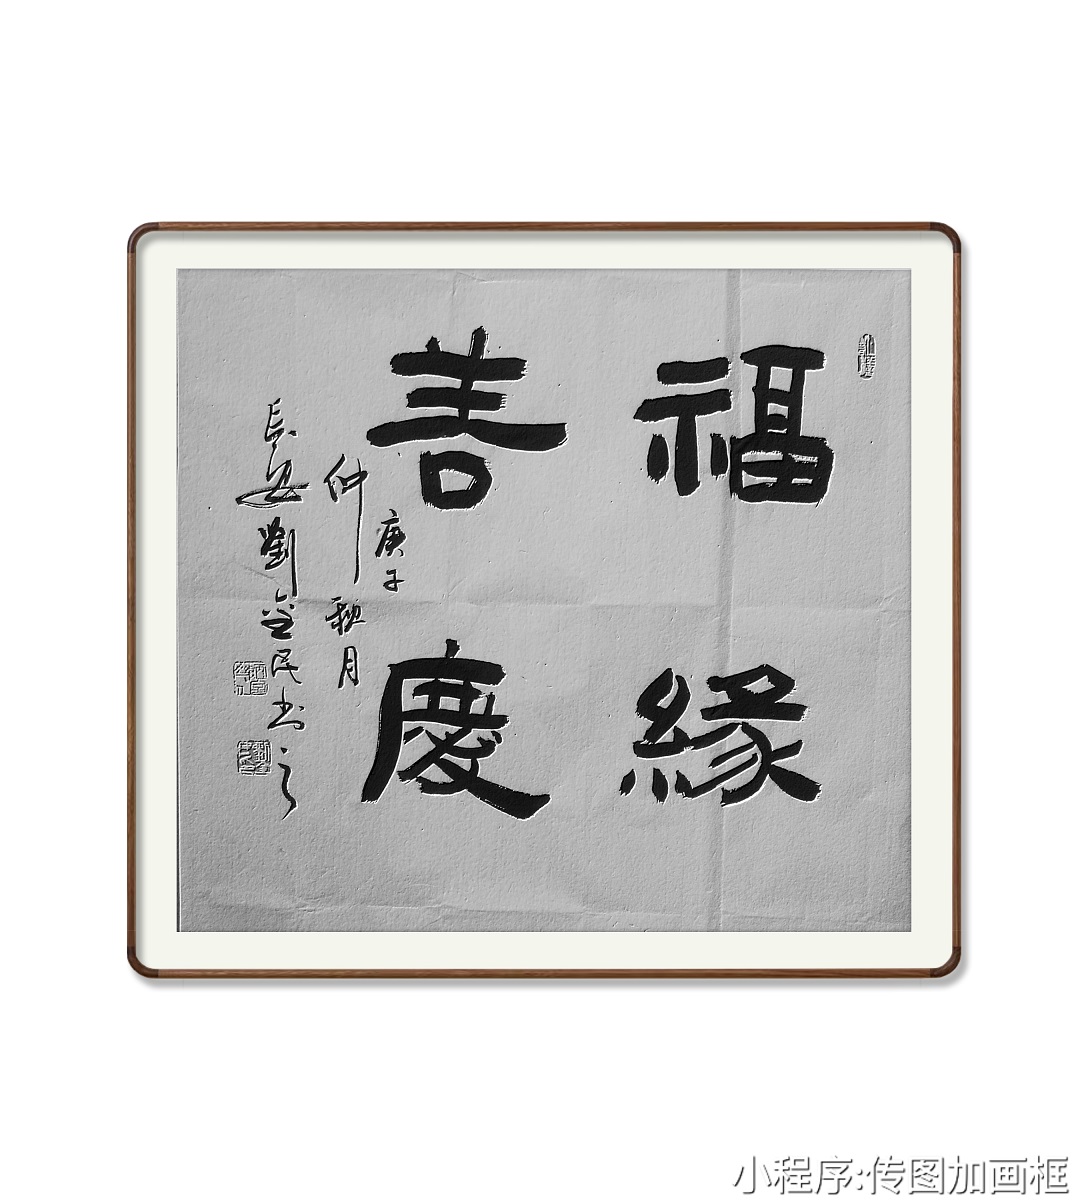 福緣
善慶
庚子
仲秋月
長安劉金民书之
小程序:传图加画框